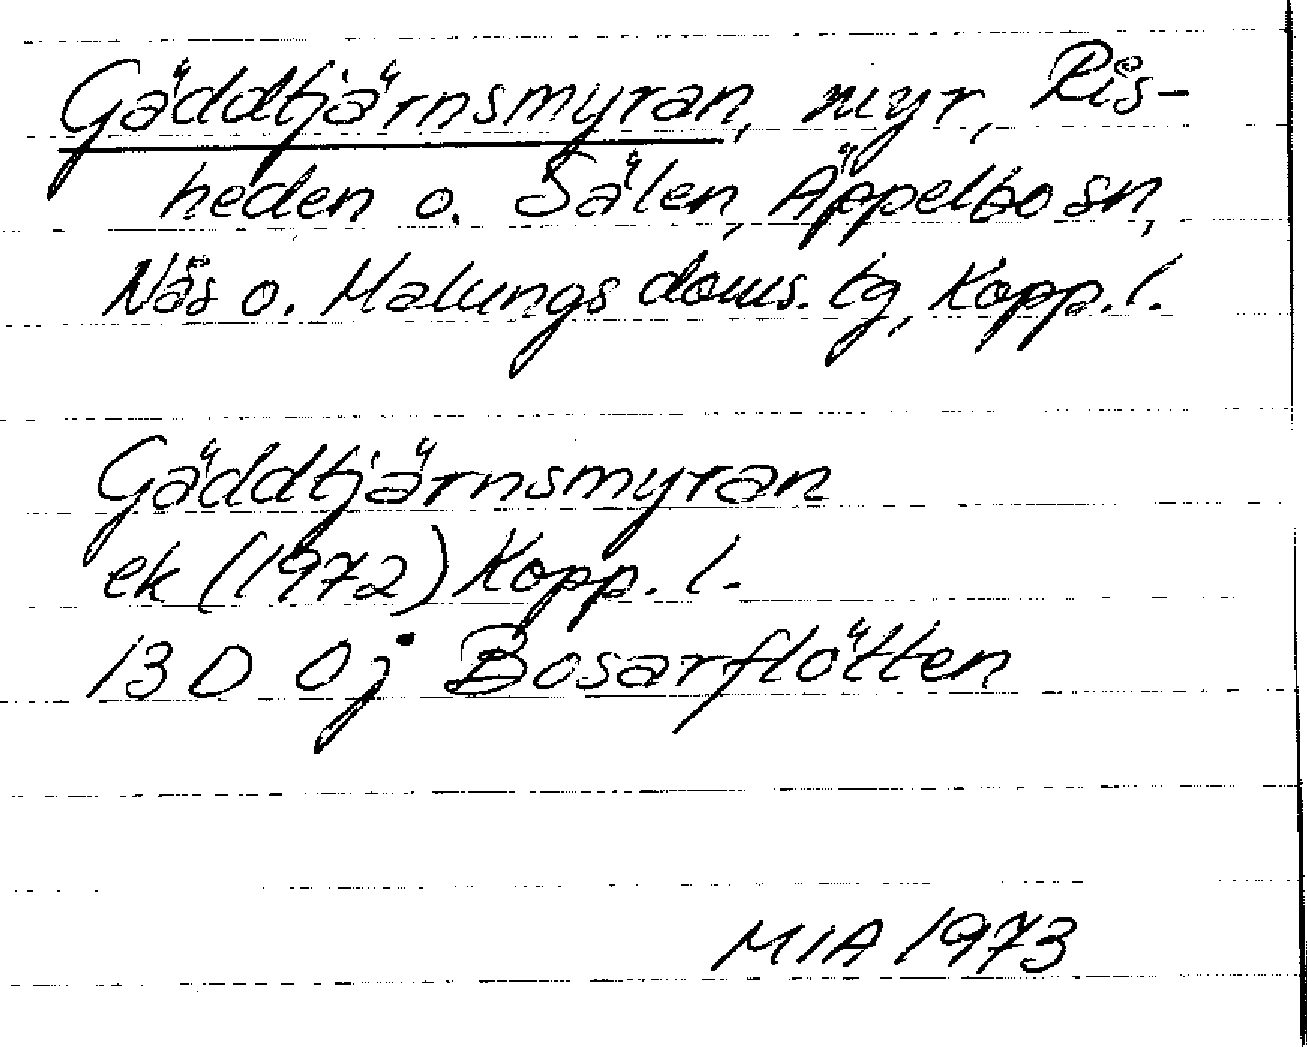 Gäddtjärnsmyran, myr, Ris-
heden o. Sälen, Äppelbo sn,
Nås o. Malungs doms. tg, Kopp. l.
Gäddtjärnsmyran
ek (1972) Kopp. l.
13 D 0j Bosarflötten
MIA 1973